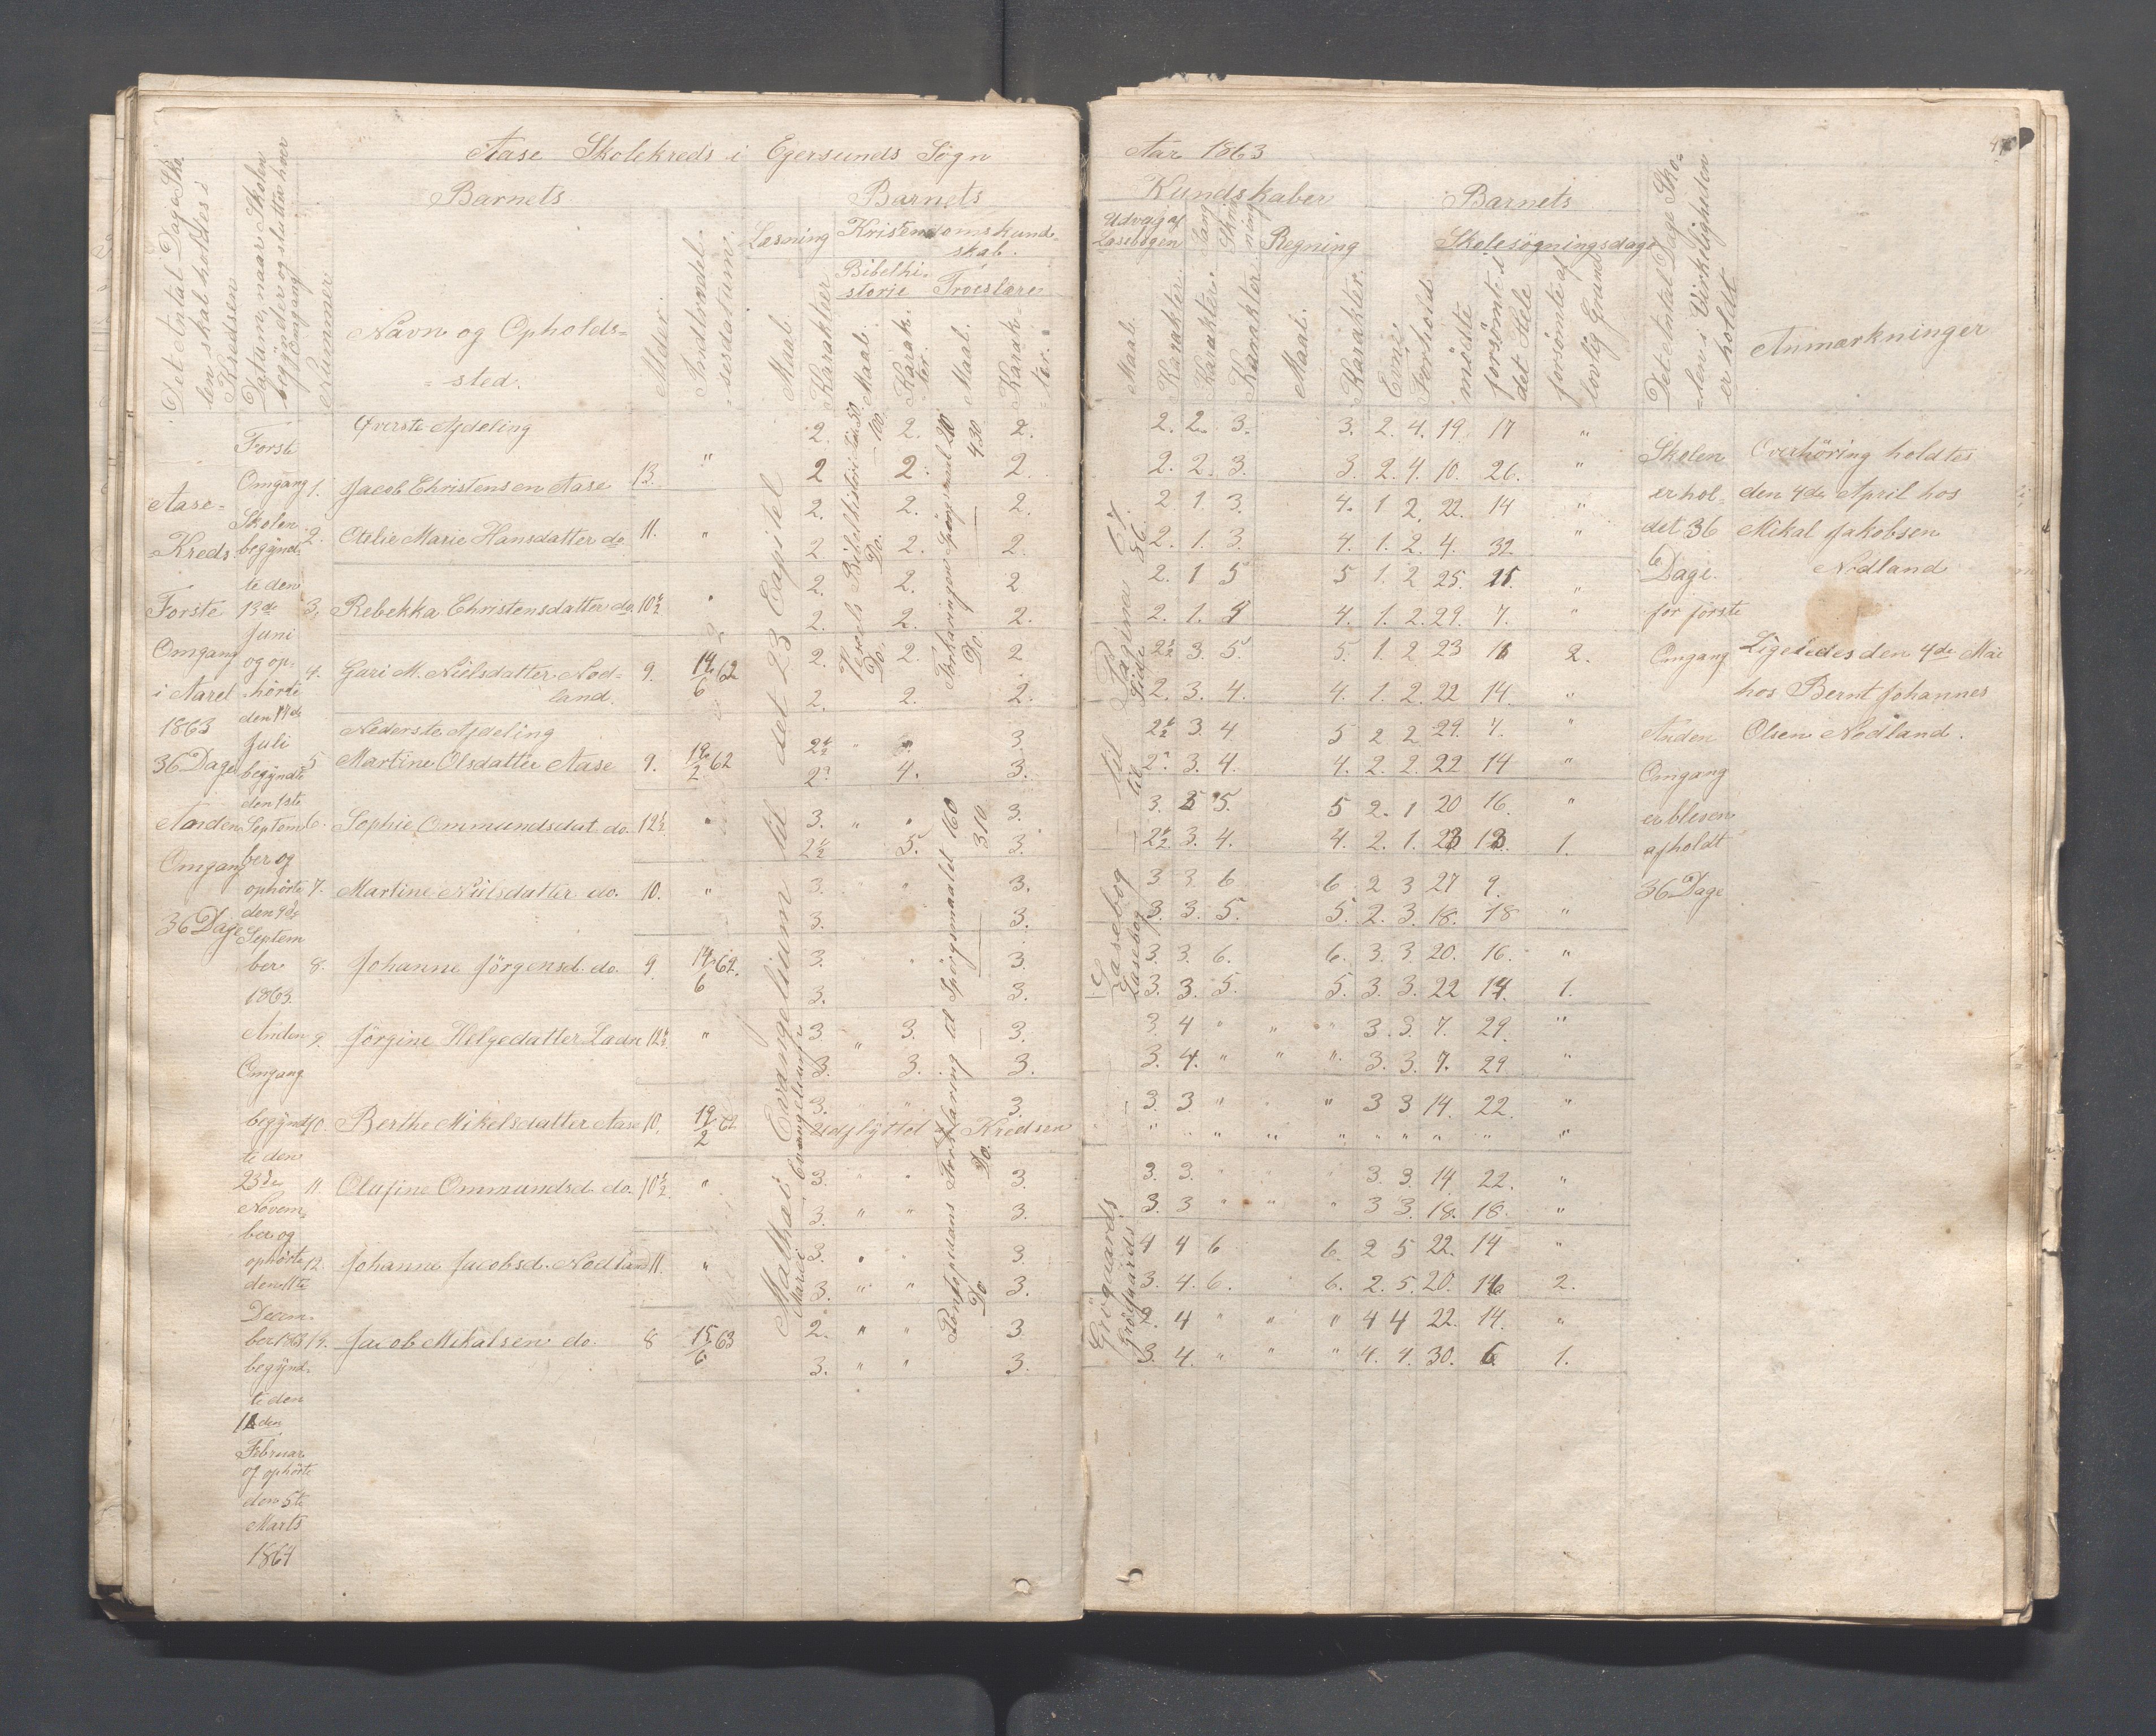 Aase Skolekreds i Egersunds Sogn
Aar 1863
Det Antal Dage Sko-
len skal holdes i
Kredsen
Datum, naar Skolen
begynder og slutter hver
Omgang
Nummer
Barnets
Navn og Opholds=
=sted.
Alder.
Indtrædel-
=sesdatum.
Barnets
Læsning
Kristendomskund=
skab.
Bibelhi-
storie
Troeslære
Maal.
Karakter
Maal.
Karak-
ter.
Maal.
Karak-
ter.
Kundskaber
Udvalg af
Læsebogen
Sang
Skriv-
ning
Regning
Maal.
Karakter.
Karakter.
Karakter.
Maal.
Karakter.
Barnets
Skolesøgningsdage
Evne
Forhold
mødte
forsømte i
det Hele
forsømte af
lovlig Grund
Det Antal Dage Sko=
=len i Virkeligheden
er holdt
Anmærkninger
Øverste Afdeling
1. Jacob Christensen Aase 13. "
2. 2. 2. 2. 2. 3. 3. 2. 4. 19. 17 "
2 2. 2 2. 2. 3. 3. 2. 4. 10. 26. "
2. Otelie Marie Hansdatter do 11. "
2. 2. 2. 2 1 3. 4. 1 2. 22. 14 "
2. 2. 2. 2. 1. 3. 4. 1. 2. 4. 32 "
3. Rebekka Christensdatter do 10½ "
2. 2. 2 2. 1 5 5 1. 2 25. "
2. 2. 2. 2. 1. 4. 1. 2. 29. 7. "
4. Gari M. Nielsdatter Nod-
land. 9. 14/6 62
2. 2. 2 2½ 3. 5. 5. 1. 2 23 2.
2. 2. 2. 2. 3. 4. 4. 1. 2. 22 14. "
Nederste Afdeling
5 Martine Olsdatter Aase 9. 19/2 62
2½ " " 3. 2½ 3. 4 5 2 2 29. 7. "
4. 3. 3. 4. 4. 2. 2. 22 14 "
6. Sophie Ommundsdat do. 12½. "
3. " " 3. 3. 5. 5 2. 1 20 16. "
2½ 5. 3. 2½ 3. 4. 4. 2. 1. 1.
7. Martine Nielsdatter do. 10. "
3. " " 3. 3 3. 6 6. 2 3 27 9.
3. 3. 3. 3. 5. 5. 2. 3. 18. 18 "
8. Johanne Jörgensd. do. 9. 14/6 62.
3. 3. 3. 3. 6. 6. 3. 3. 20. 16. "
3. 3. 3. 3. 5. 5. 3. 3. 22 14. 1.
9. Jörgine Helgedatter Ladn 12½. "
3 " 3. 3. 3. 4 " " " 3. 3. 7. 29. "
3. 3. 3. 3. 4. " " " 3. 3. 7. 29 "
10. Berthe Mikelsdatter Aase 10. 19/2 62
3. " " 3. 3. 3 " " " 3 3 14. 22. "
Udflyttet af Kredsen " " " " " " " " " "
11. Olufine Ommundsd. do. 10½. "
3. " " 3. 3. 3. " " " 3. 3. 14 22. "
3. " " 3. 3. 3 " " " 3 3. 18. 18. "
12. Johanne Jacobsd. Nodland 11. "
3. " " 3. 4 4 6 6. 2 5 22. 14 "
3. " " 3. 3. 4. 6. 6. 2. 5. 20. 2.
13. Jacob Mikalsen do. 8 15/6 63
2. " " 3. 2. 4 " " " 4 4 22. 14. "
3. " " 3. 3. 4. " " " 4. 4. 30. 6 1.
Aase=
=Kreds
Første
Omgang
i Aaret
1863
36 Dage
Anden
Omgang
36 Dage
Forste
Omgang
Skolen
begynd-
te den
13de
Juni
og op-
hørte
den 14de
Juli
begyndte
den 1ste
Septem-
ber og
ophørte
den 9de
Septem
ber
1863.
Anden
Omgang
begynd-
te den
23de
Novem-
ber og
ophørte
den 11te
Decem-
ber 1863
begynd-
te den
Februar
og ophørte
den 5te
Marts
1864
Mathæi Evangelium til det 23 Capitel
Marci Evangelium
Vogts Bibelhistorie Side 50
Do. Do. — 100.
Pontoppidans Forklaring til Spörgsmaalet 160
Do Do. — 310
Forklaringen Spörgsmaal 210
Do — 430
Gröguards Læsebog til Pagina 67.
Gröguards Læsebog — til Side 56.
Skolen
er hol-
det 36
Dage
for første
Omgang
Anden
Omgang
er bleven
afholdt
36 Dage
Overhöring holdtes
den 4de April hos
Mikal Jakobsen
Nodland
Ligeledes den 4de Mai
hos Bernt Johannes
Olsen Nodland.